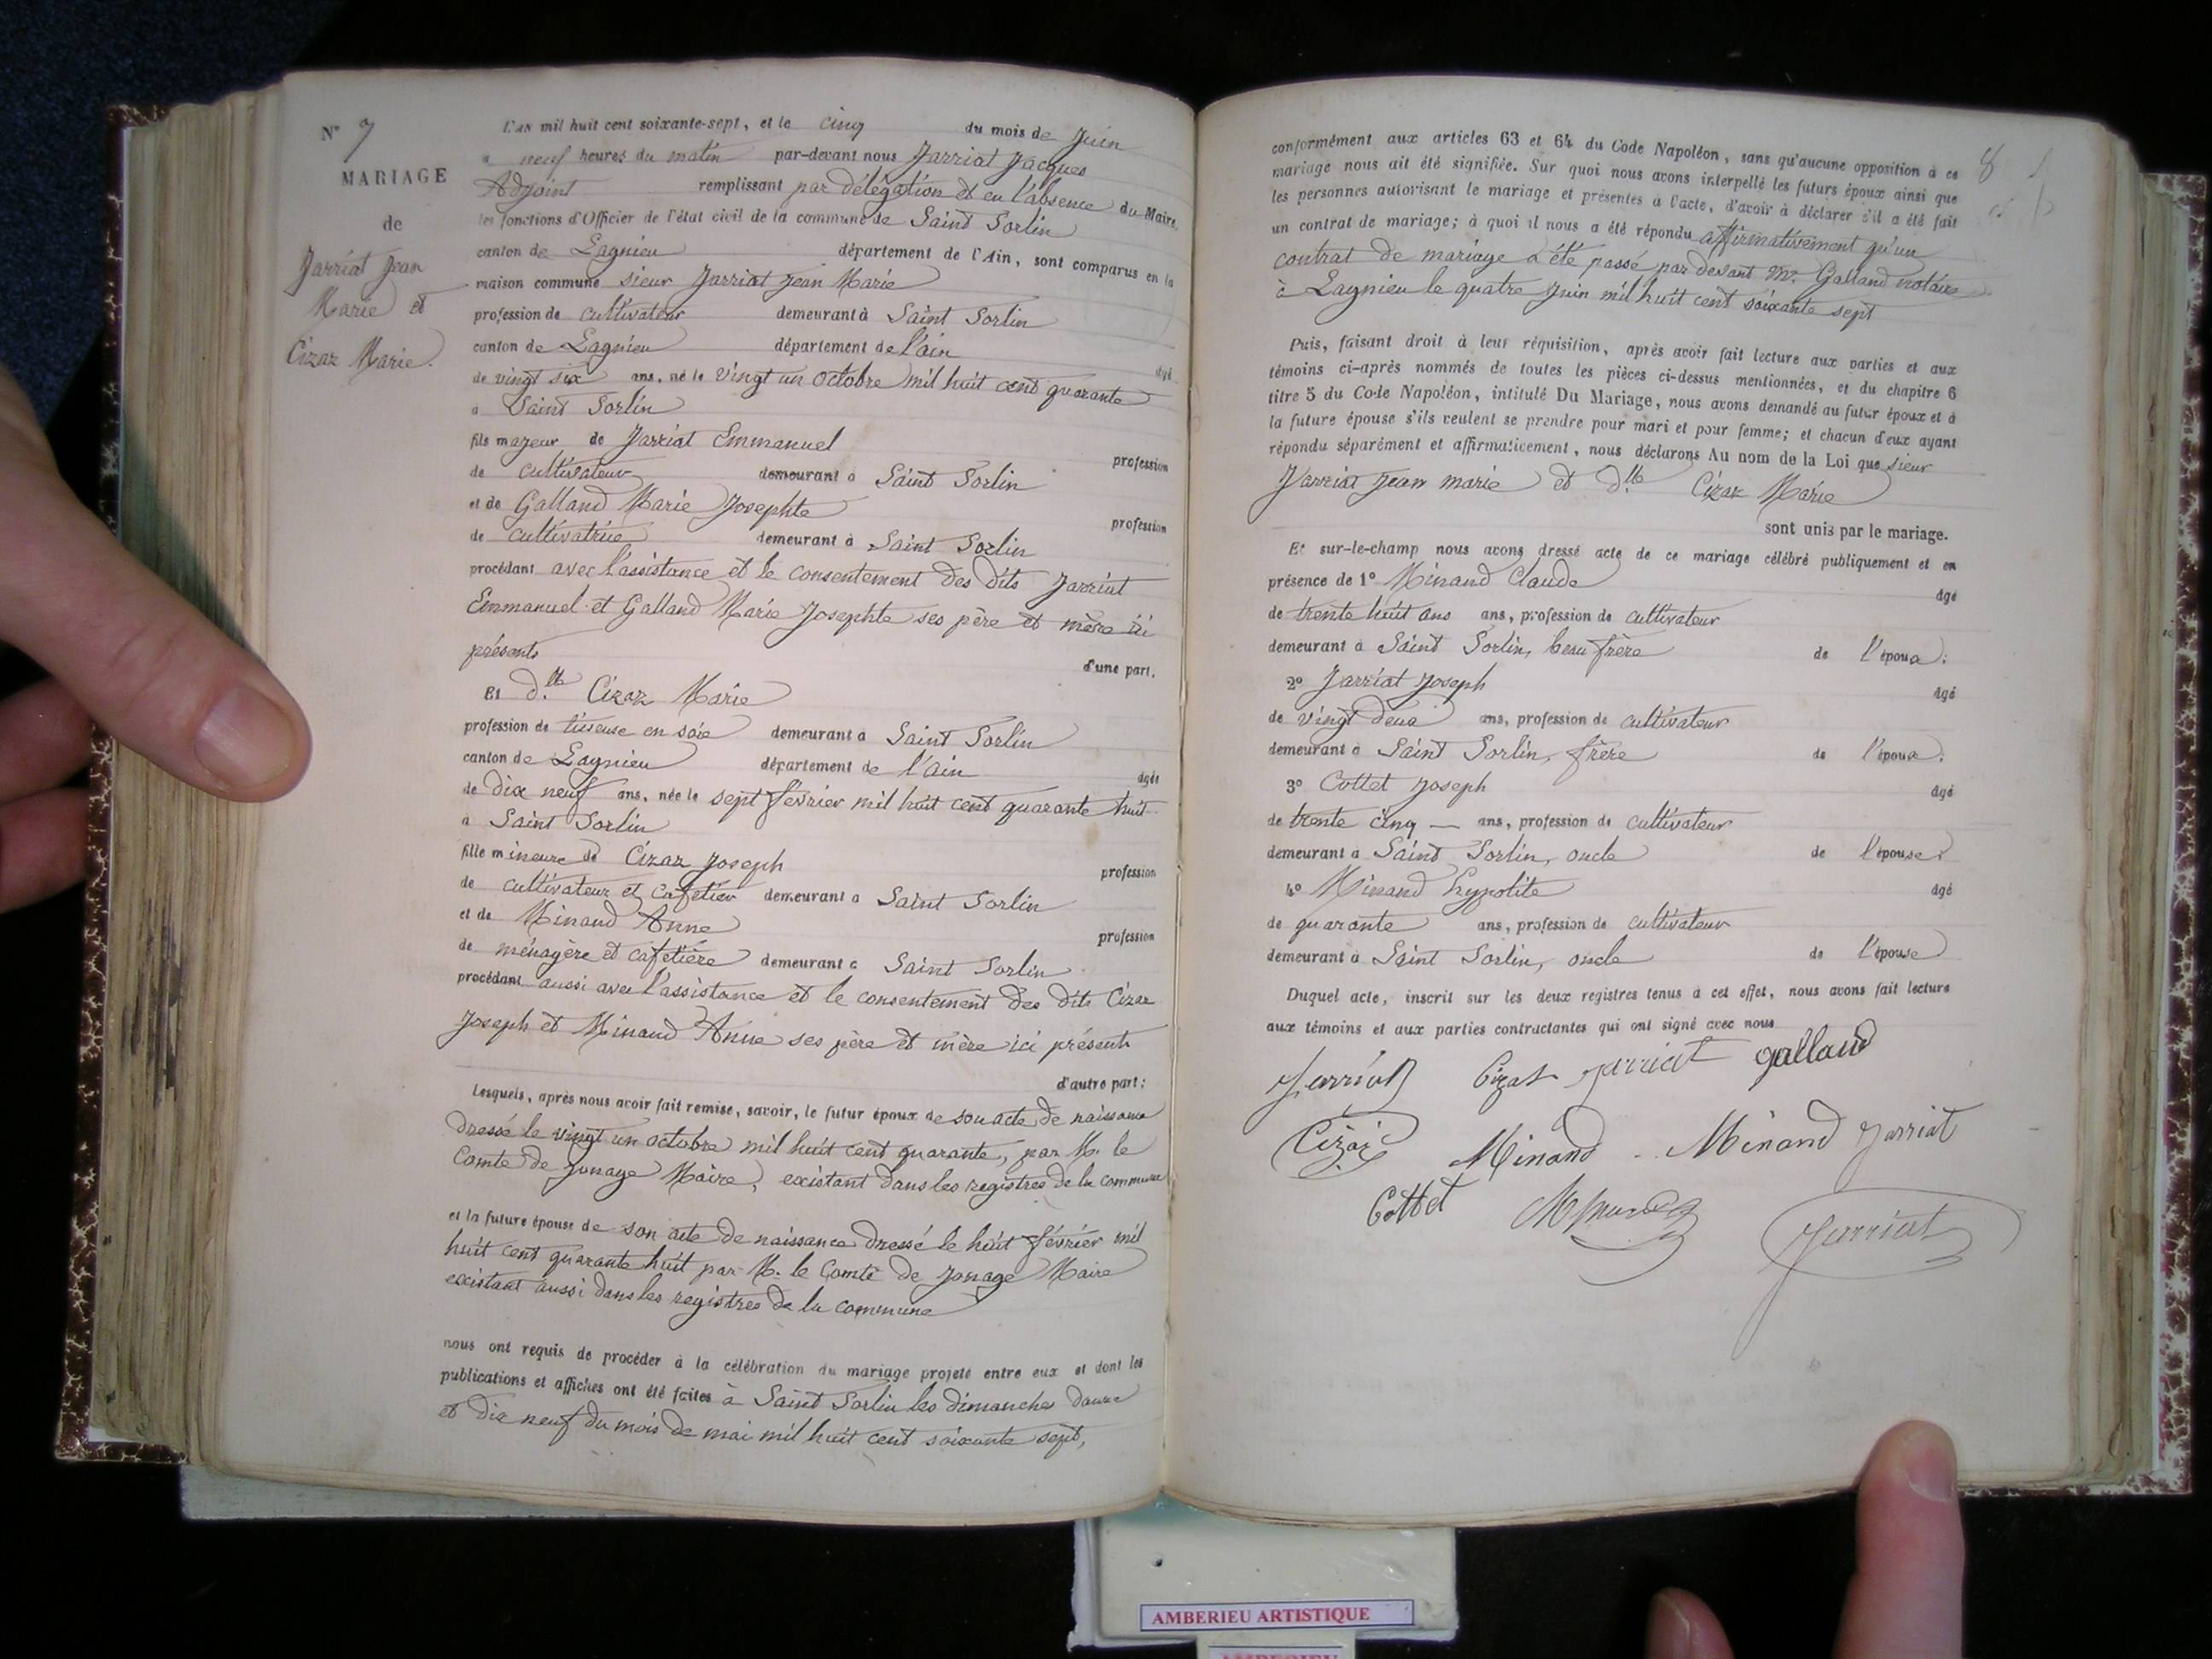 N° 7
MARIAGE
de
Jarriat Jean
Marie et
Cizaz Marie.
L'AN mil huit cent soixante-sept, et le cinq du mois de Juin
à neuf heures du matin par-devant nous Jarriat Jacques
Adjoint remplissant par délégation et en l'absence du Maire,
les fonctions d'Officier de l'état civil de la commune de Saint Sorlin
canton de Lagnieu département de l'Ain, sont comparus en la
maison commune sieur Jarriat Jean Marie
profession de cultivateur demeurant à Saint Sorlin
canton de Lagnieu département de l'ain
âgé
de vingt six ans, né le vingt un octobre mil huit cent quarante
à Saint Sorlin
fils majeur de Jarriat Emmanuel
profession
de cultivateur demeurant à Saint Sorlin
et de Galland Marie Josephte
profession
de cultivatrice demeurant à Saint Sorlin
procédant avec l'assistance et le consentement des dits Jarriat
Emmanuel et Galland Marie Josephte ses père et mère ici
présents
d'une part.
Et d.lle Cizaz Marie
profession de tisseuse en soie demeurant à Saint Sorlin
canton de Lagnieu département de l'Ain
âgée
de dix neuf ans, née le sept février mil huit cent quarante huit
à Saint Sorlin
fille mineure de Cizaz Joseph
profession
de cultivateur et cafetier demeurant à Saint Sorlin
et de Minand Anne
profession
de ménagère et cafetière demeurant à Saint Sorlin
procédant aussi avec l'assistance et le consentement des dits Cizaz
Joseph et Minand Anne ses père et mère ici présents
d'autre part:
Lesquels, après nous avoir fait remise, savoir, le futur époux de son acte de naissance
dressé le vingt un octobre mil huit cent quarante, par M. le
Comte de Jonage Maire, existant dans les registres de la commune
et la future épouse de son acte de naissance dressé le huit février mil
huit cent quarante huit par M. le Comte de Jonage Maire
existant aussi dans les registres de la commune
nous ont requis de procéder à la célébration du mariage projeté entre eux et dont les
publications et affiches ont été faites à Saint Sorlin les dimanches douze
et dix neuf du mois de mai mil huit cent soixante sept,
conformément aux articles 63 et 64 du Code Napoléon, sans qu'aucune opposition à ce
mariage nous ait été signifiée. Sur quoi nous avons interpellé les futurs époux ainsi que
les personnes autorisant le mariage et présentes à l'acte, d'avoir à déclarer s'il a été fait
un contrat de mariage; à quoi il nous a été répondu affirmativement qu'un
contrat de mariage a été passé par devant Mr. Galland notaire
à Lagnieu le quatre Juin mil huit cent soixante sept
8
Puis, faisant droit à leur réquisition, après avoir fait lecture aux parties et aux
témoins ci-après nommés de toutes les pièces ci-dessus mentionnées, et du chapitre 6
titre 5 du Code Napoléon, intitulé Du Mariage, nous avons demandé au futur époux et à
la future épouse s'ils veulent se prendre pour mari et pour femme; et chacun d'eux ayant
répondu séparément et affirmativement, nous déclarons Au nom de la Loi que sieur
Jarriat Jean marie et d.lle Cizaz Marie
sont unis par le mariage.
Et sur-le-champ nous avons dressé acte de ce mariage célébré publiquement et en
présence de 1° Minand Claude
âgé
de trente huit ans ans, profession de cultivateur
demeurant à Saint Sorlin, beau frère de l'époux;
2° Jarriat Joseph
âgé
de vingt deux ans, profession de cultivateur
demeurant à Saint Sorlin, frère de l'époux;
3° Cottet Joseph
âgé
de trente cinq — ans, profession de cultivateur
demeurant à Saint Sorlin, oncle de l'épouse;
4° Minand hyppolite
âgé
de quarante ans, profession de cultivateur
demeurant à Saint Sorlin, oncle de l'épouse
Duquel acte, inscrit sur les deux registres tenus à cet effet, nous avons fait lecture
aux témoins et aux parties contractantes qui ont signé avec nous
Jarriat Cizaz Jarriat galland
Cizaz Minand Minand Jarriat
Cottet Minand Jarriat
AMBERIEU ARTISTIQUE
AMBERIEU